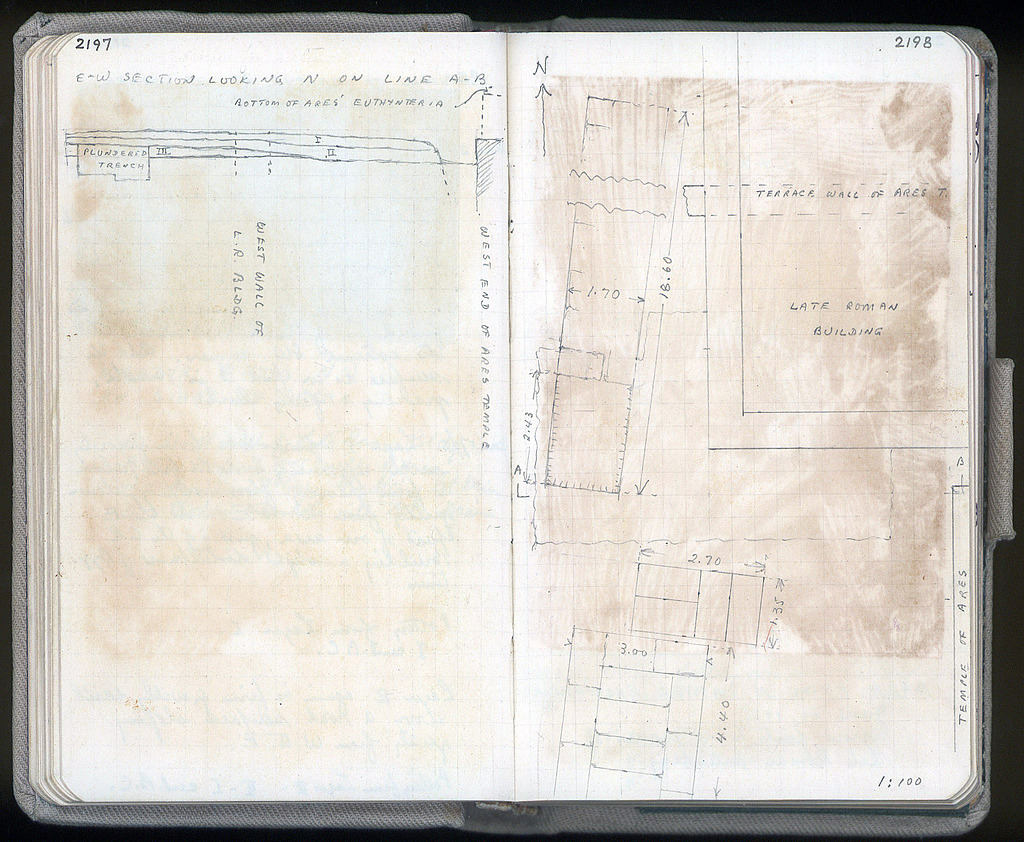 2197
E-W SECTION LOOKING N ON LINE A-B
BOTTOM OF ARES' EUTHYNTERIA
I
PLUNDERED
TRENCH
III
II
WEST WALL OF
L.R. BLDG.
WEST END OF ARES TEMPLE
2198
N
TERRACE WALL OF ARES T.
18.60
1.70
LATE ROMAN
BUILDING
2.43
A
B
2.70
1.35
3.00
4.40
TEMPLE OF ARES
1:100